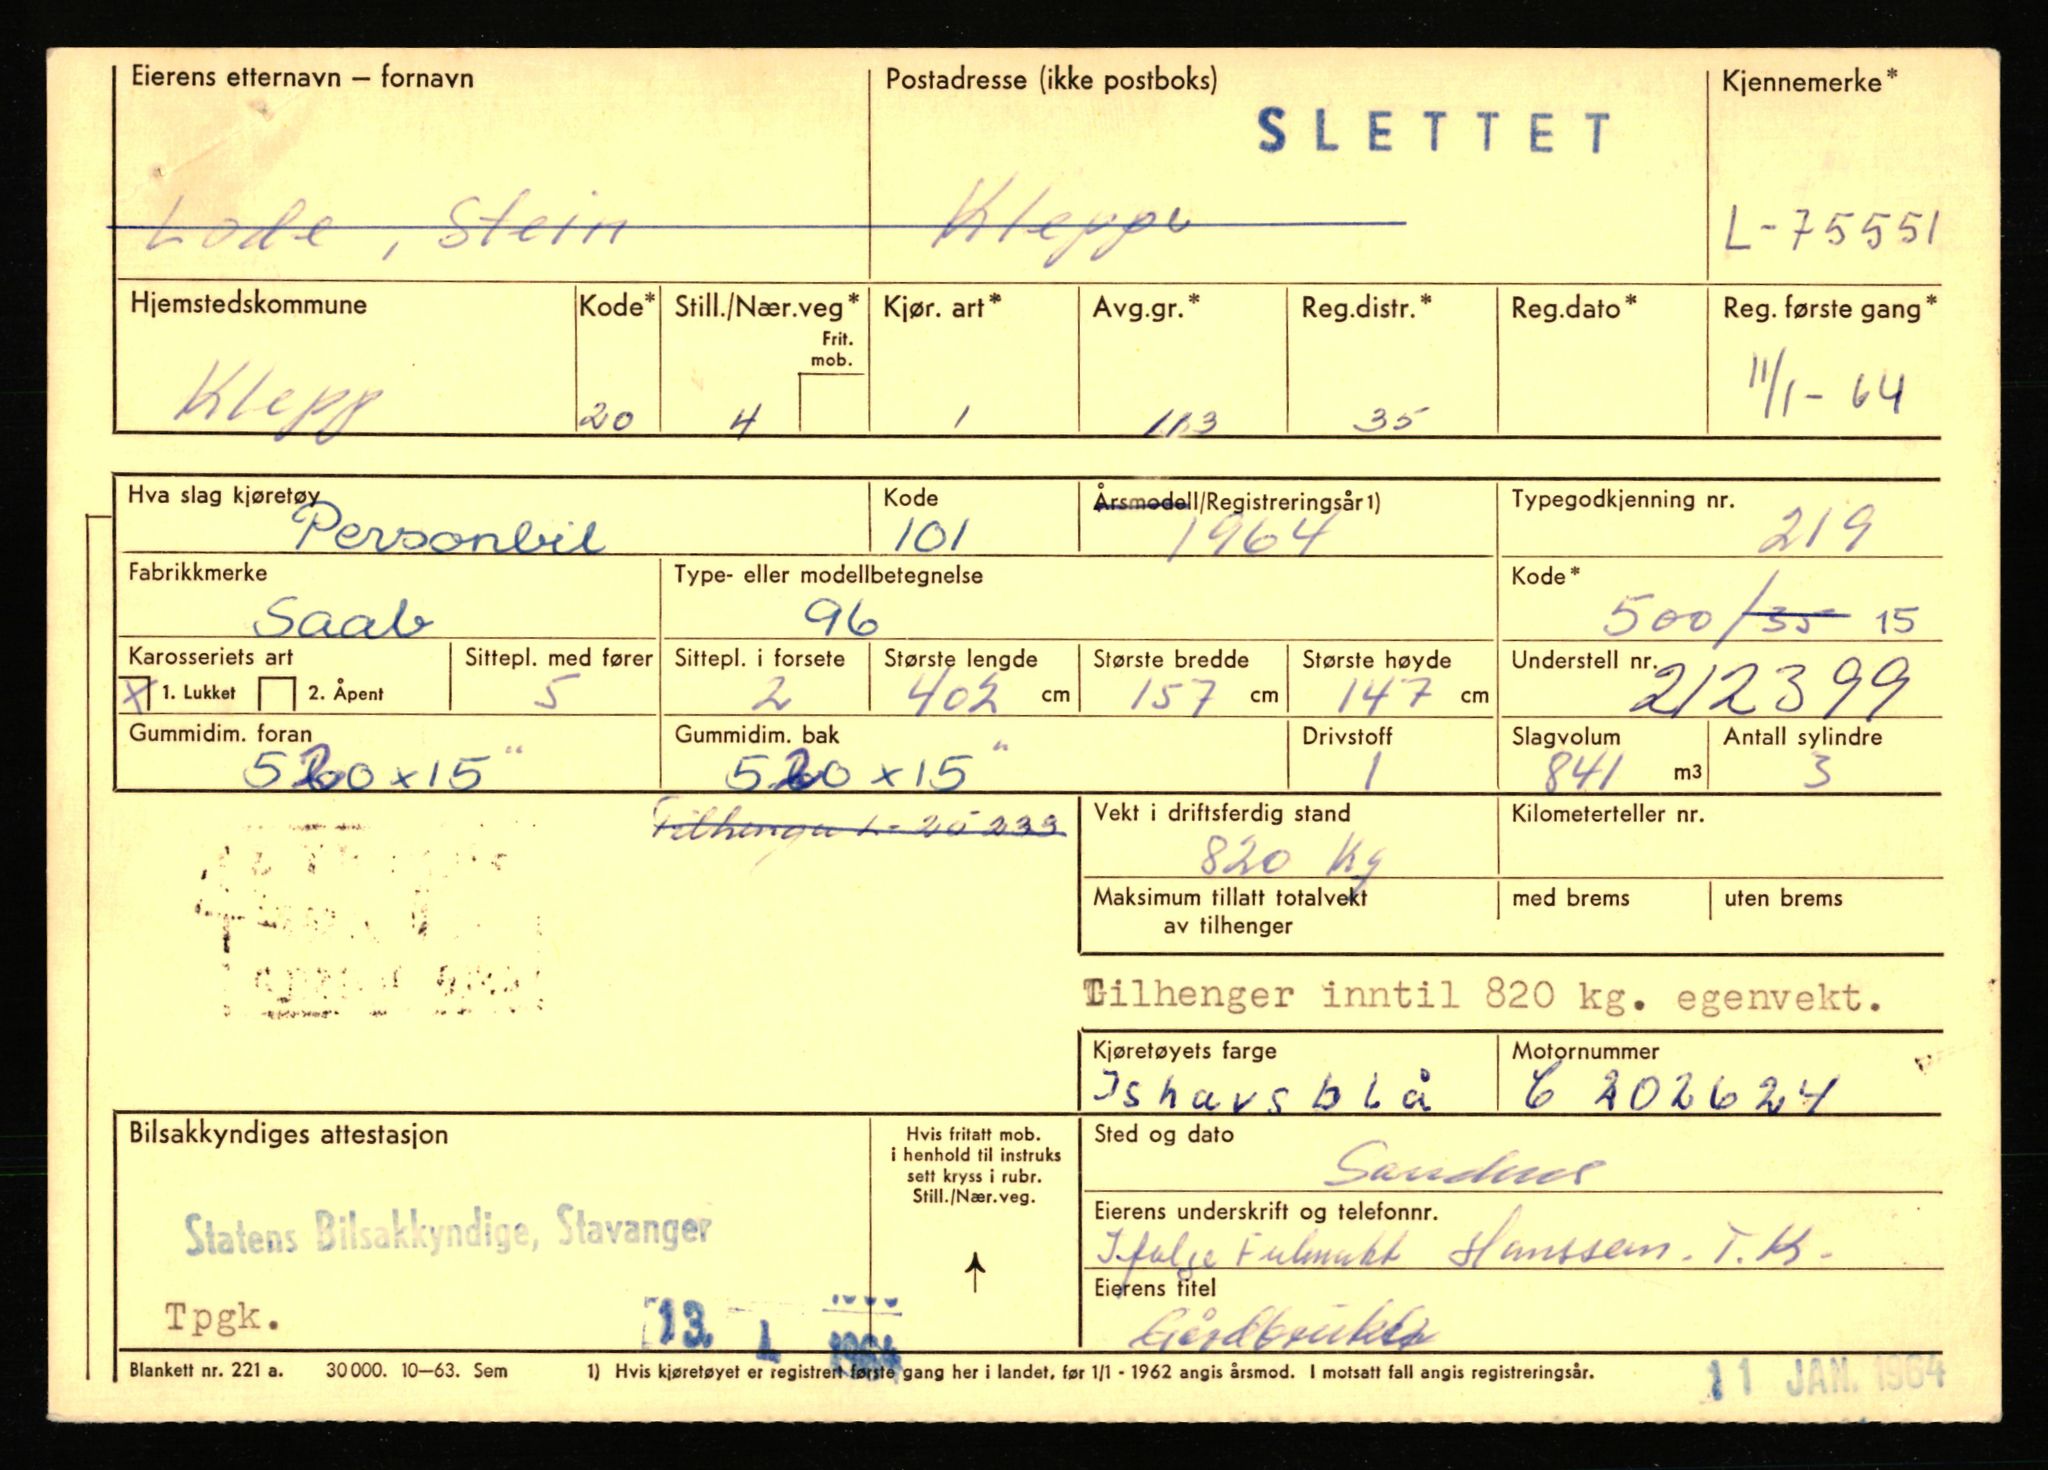 Eierens etternavn – fornavn Postadresse (ikke postboks) Kjennemerke*
SLETTET
Lode, Stein Kleppe L-75551
Hjemstedskommune Kode* Still./Nær.veg* Kjør. art* Avg.gr.* Reg.distr.* Reg.dato* Reg. første gang*
Frit.
mob.
Klepp 20 4 1 113 35 11/1-64
Hva slag kjøretøy Kode Årsmodell/Registreringsår1) Typegodkjenning nr.
Personbil 101 1964 219
Fabrikkmerke Type- eller modellbetegnelse Kode*
Saab 96 500/35 15
Karosseriets art Sittepl. med fører Sittepl. i forsete Største lengde Største bredde Største høyde Understell nr.
X 1. Lukket 2. Åpent 5 2 402 cm 157 cm 147 cm 212399
Gummidim. foran Gummidim. bak Drivstoff Slagvolum Antall sylindre
x15" x15" 1 841 m3 3
Tilhenger L- 20233
Vekt i driftsferdig stand Kilometerteller nr.
820 kg
Maksimum tillatt totalvekt med brems uten brems
av tilhenger
Tilhenger inntil 820 kg. egenvekt.
Kjøretøyets farge Motornummer
Ishavsblå C 202624
Bilsakkyndiges attestasjon Hvis fritatt mob. Sted og dato
i henhold til instruks
sett kryss i rubr.
Still./Nær.veg.
Sandnes
Statens Bilsakkyndige, Stavanger Eierens underskrift og telefonnr.
Ifølge Fulmakt Hanssen. T.K.
Eierens titel
Tpgk. 13. 1 1964 Gårdbruker
Blankett nr. 221 a. 30 000. 10–63. Sem 1) Hvis kjøretøyet er registrert første gang her i landet, før 1/1 - 1962 angis årsmod. I motsatt fall angis registreringsår.
11 JAN. 1964